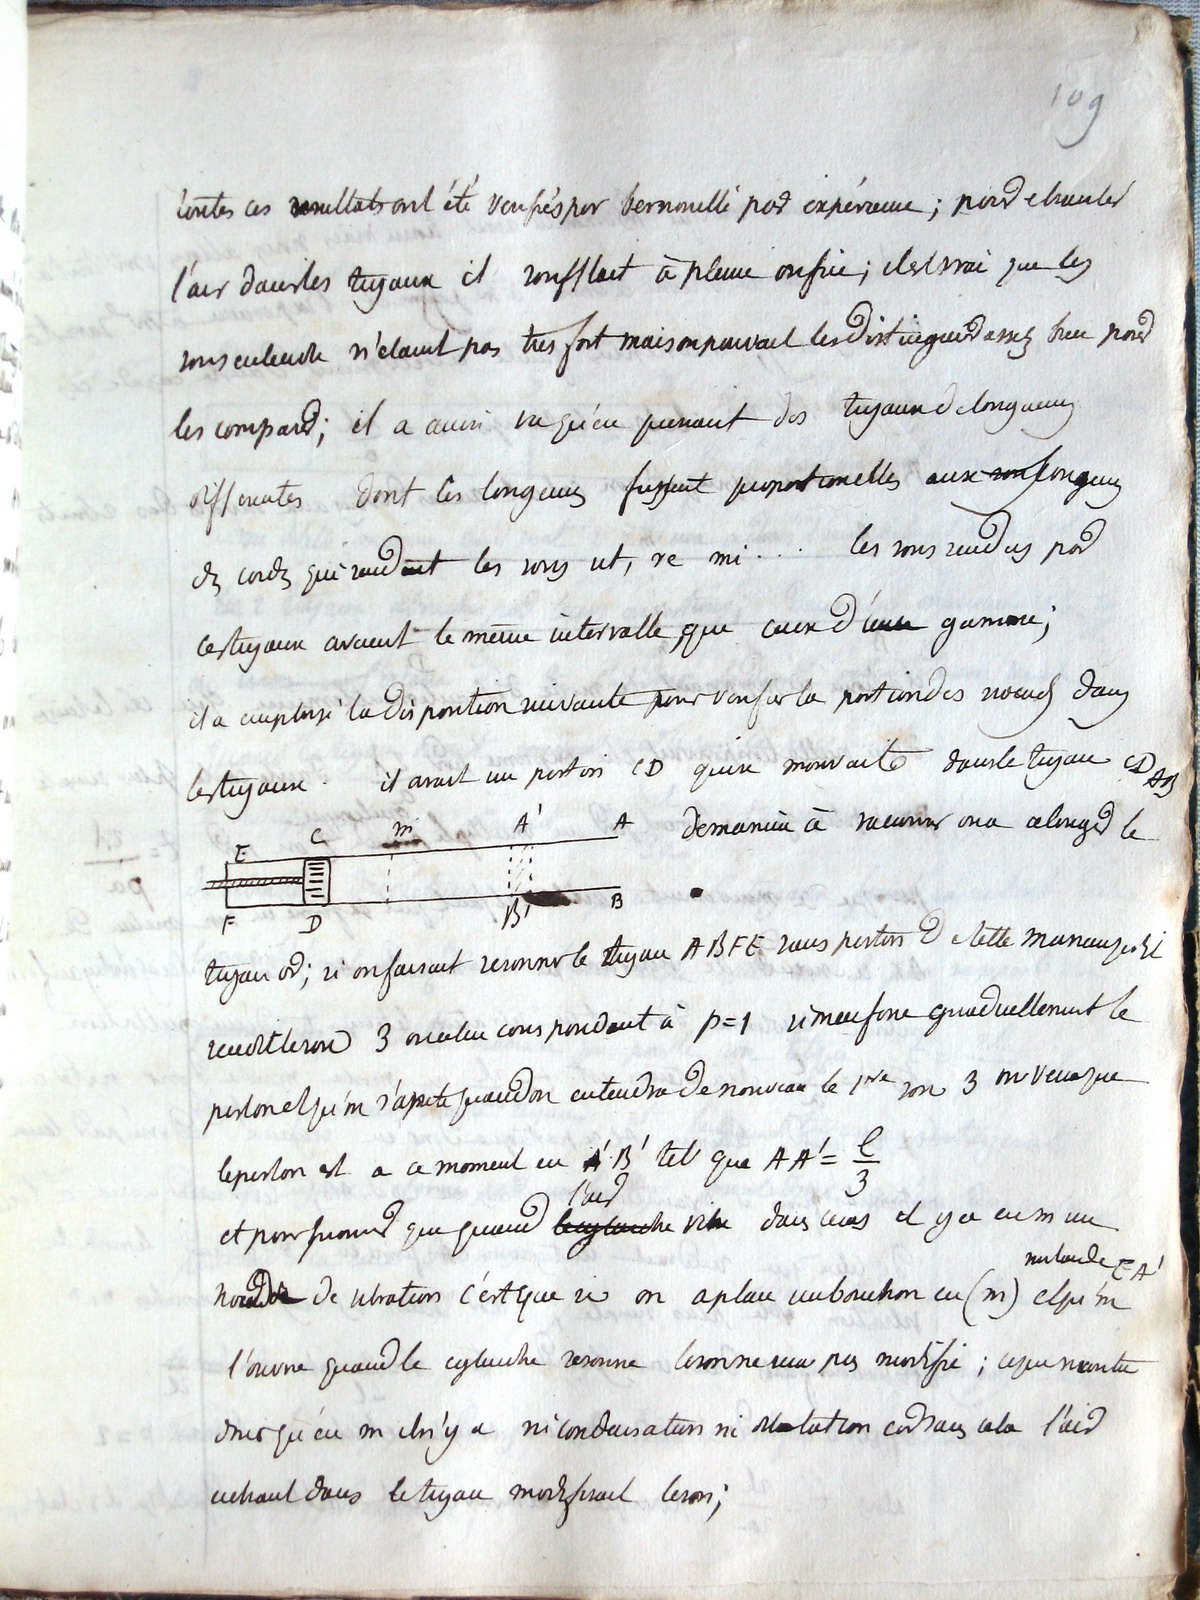 109
toutes ces resultats ont été verifiés par bernouilli par expérience ; pour ebranler
l'air dans les tuyaux il soufflait à pleine orifice ; il est vrai que les
sons entendu n'étaient pas tres fort mais on pouvait les distinguer assez bien pour
les comparer ; il a aussi vu qu'en prenant des tuyaux de longueurs
differentes dont les longueurs fussent proportionelles aux longueurs
des cordes qui rendent les sons ut, re mi .... les sons rendus par
ces tuyaux avaient le même intervalle que ceux d'une gamme ;
il a employé la disposition suivante pour verifier la position des noeuds dans
les tuyaux . il avait un piston CD qui se mouvait dans le tuyau CDAB
de maniere à racourcir ou a alonger le
E C m A' A
F D B' B
tuyau ; si on faisait resonner le tuyau ABFE sans piston de telle maniere qu'il
rendit le son 3 ou celui correspondant à p=1 si on enfonce graduellement le
piston et qu'on s'arrete quand on entendra de nouveau le 1re son 3 on verra que
le piston est a ce moment en A'B' tel que AA' = l/3
l'air
et pour prouver que quand vibre dans il y a en m un
milieu de EA'
de vibration c'est que si on a place un bouchon en (m) et qu'on
l'ouvre quand le cylindre resonne le son ne sera pas modifié ; ce qui montre
donc qu'en m il n'y a ni condensation ni dilatation car sans cela l'air
entrant dans le tuyau modifierait le son ;